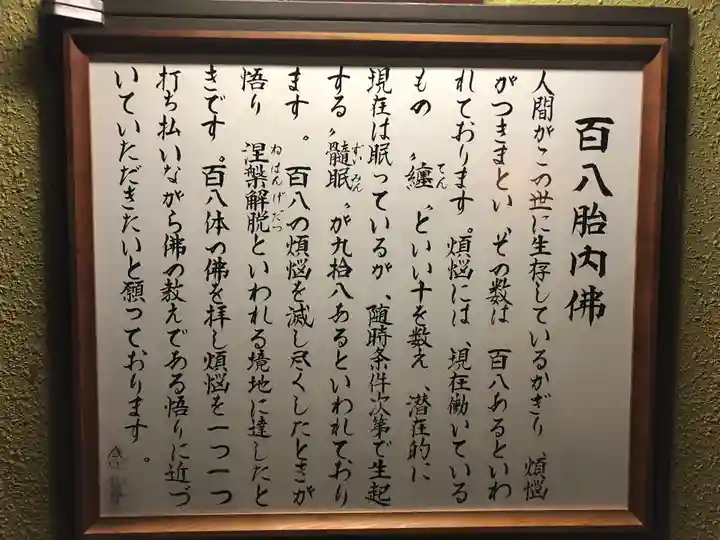 百八胎内佛
人間がこの世に生存しているかぎり、煩悩
がつきまとい、その数は、百八あるといわ
れております。煩悩には、現在働いている
もの〝纏〟といい十を数え、潜在的に
てん
現在は眠っているが、随時条件次第で生起
する〝髓眠〟が九拾八あるといわれており
ずいみん
ます。百八の煩悩を滅し尽くしたときが
悟り、涅槃解脱といわれる境地に達したと
ねはんげだつ
きです。百八体の佛を拝し煩悩を一つ一つ
打ち払いながら佛の教えである悟りに近づ
いていただきたいと願っております。
合掌